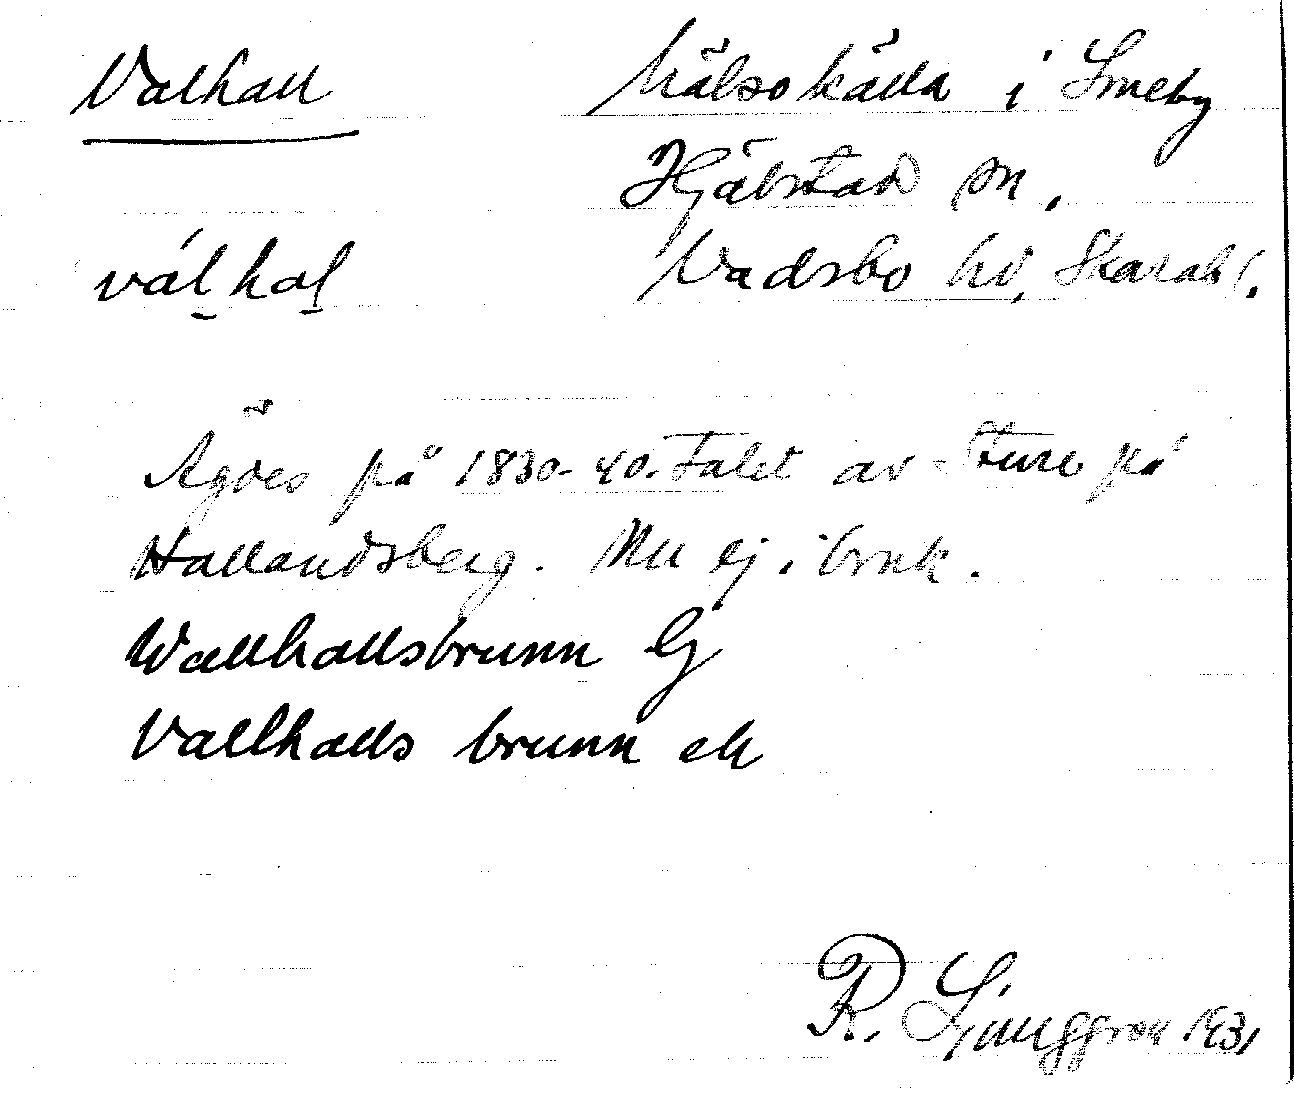 Valhall
hälsokälla i Smeby
Hjälstad sn.
Vadsbo hd, Skarab l.
válhal
Ägdes på 1830-40-talet av Ture på
Hallandsberg. Nu ej i bruk.
Wallhallsbrunn G
Vallhalls brunn ek
R. Ljunggren 1931